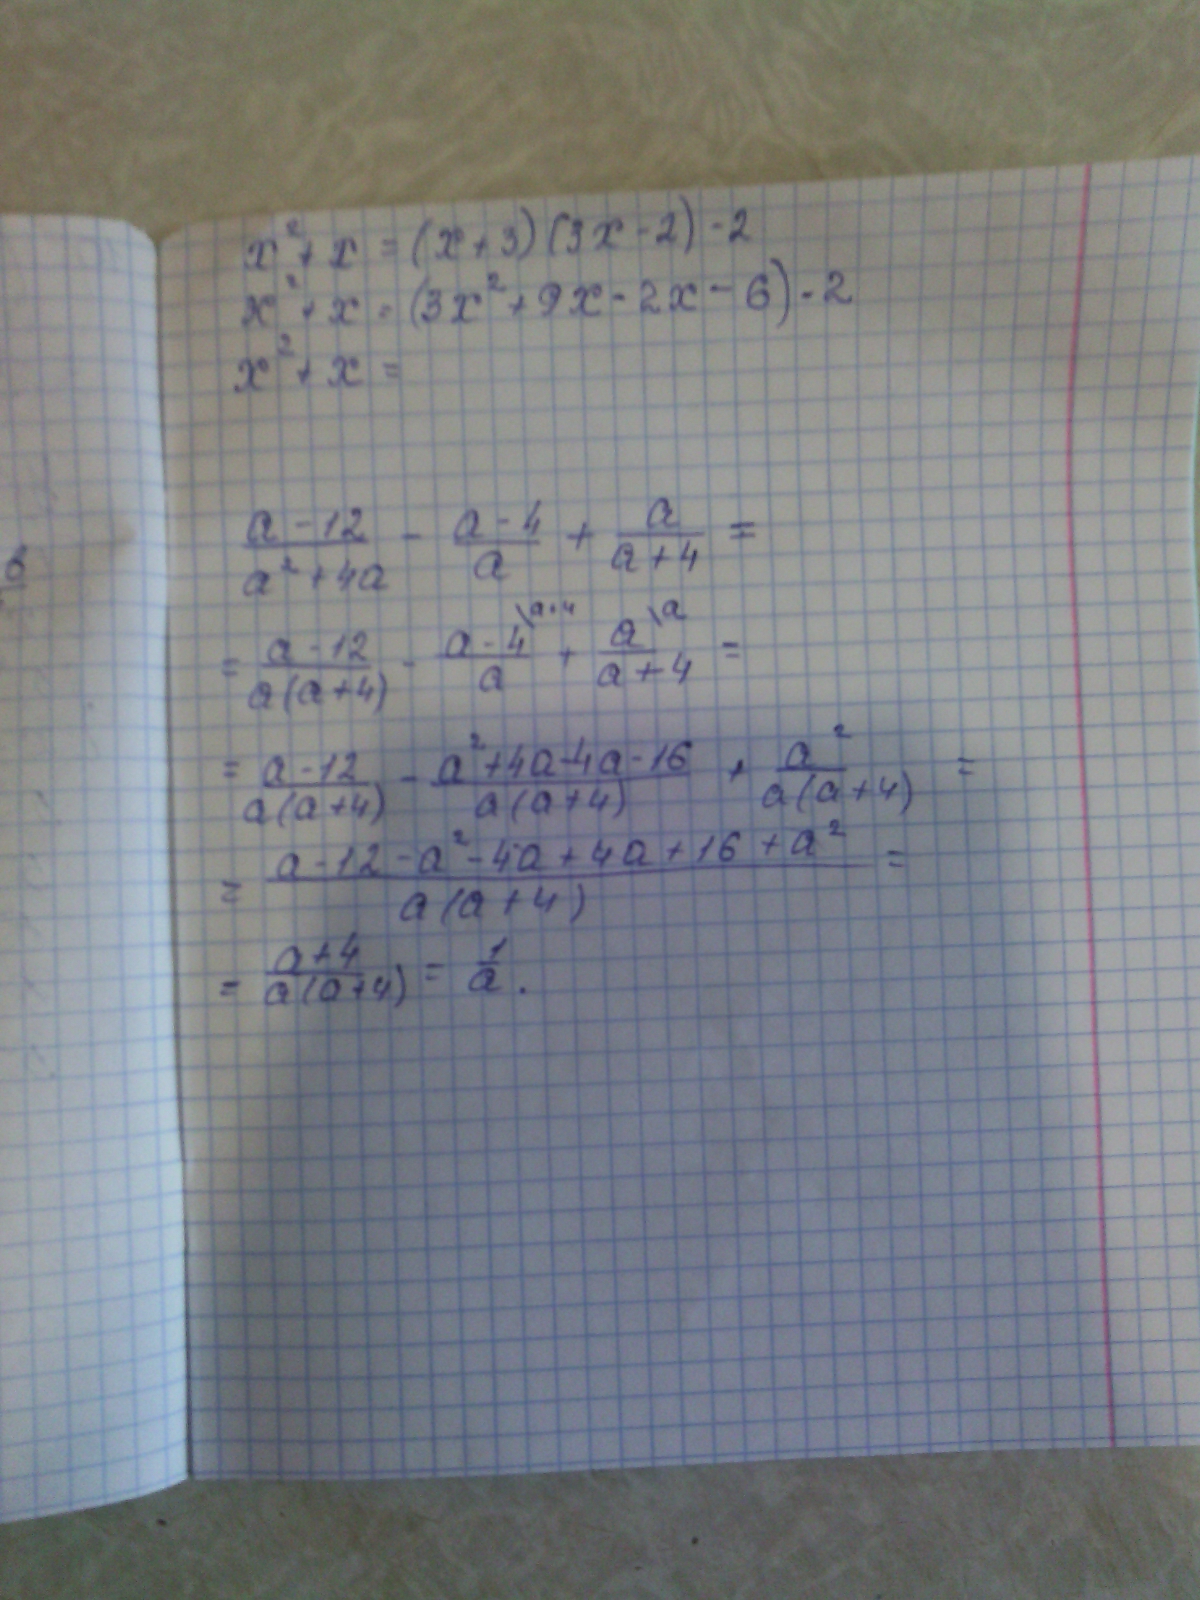 x² + x = (x + 3)(3x - 2) - 2
x² + x = (3x² + 9x - 2x - 6) - 2
x² + x =
(a - 12)/(a² + 4a) - (a - 4)/a + a/(a + 4) =
= (a - 12)/(a(a + 4)) - (a - 4)/a \a+4 + a/(a + 4) \a =
= (a - 12)/(a(a + 4)) - (a² + 4a - 4a - 16)/(a(a + 4)) + a²/(a(a + 4)) =
= (a - 12 - a² - 4a + 4a + 16 + a²)/(a(a + 4)) =
= (a + 4)/(a(a + 4)) = 1/a.